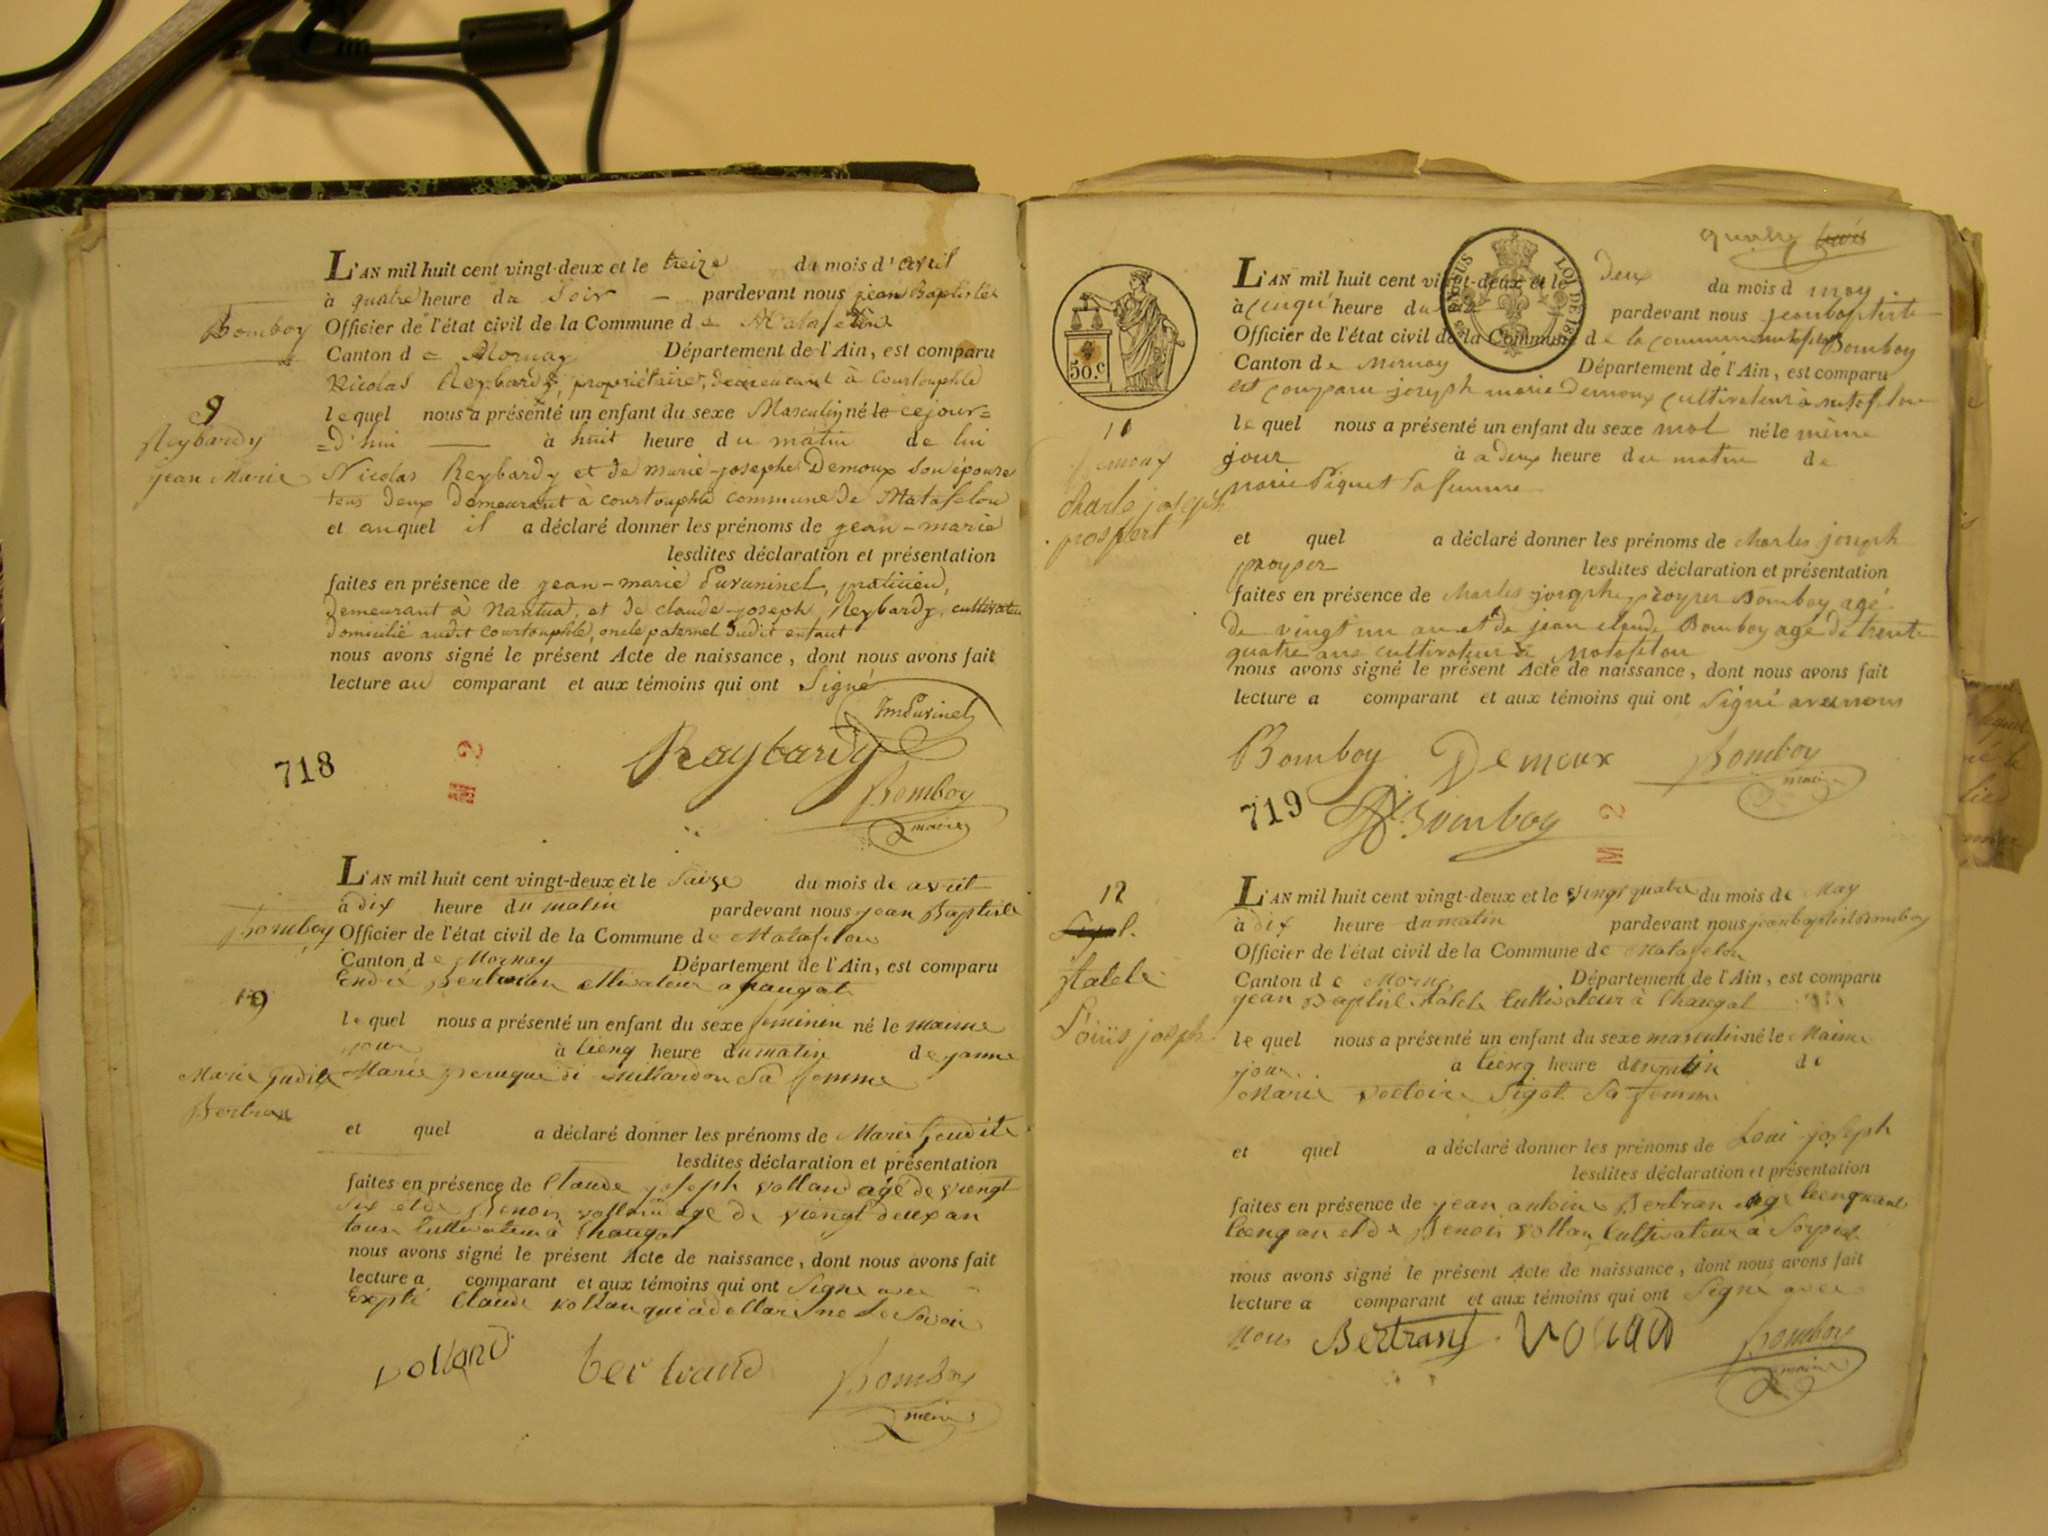 L'AN mil huit cent vingt-deux et le treize du mois d'avril
à quatre heure du Soir — pardevant nous jean Baptiste
Bomboy
Officier de l'état civil de la Commune de Matafelon
Canton de Mornay Département de l'Ain, est comparu
Nicolas Reybardy, propriétaire, demeurant à Courtouphle
9
Reybardy
jean Marie
lequel nous a présenté un enfant du sexe Masculin né le cejour=
=d'hui — à huit heure du matin de lui
Nicolas Reybardy et de marie-josephe Demoux son épouse
tous deux demeurant à courtouphle commune de Matafelon
et auquel il a déclaré donner les prénoms de jean-marie
lesdites déclaration et présentation
faites en présence de jean-marie praticien,
demeurant à Nantua, et de claude-joseph Reybardy, cultivateur
domicilié audit courtouphle, oncle paternel dudit enfant
nous avons signé le présent Acte de naissance, dont nous avons fait
lecture au comparant et aux témoins qui ont Signé
Raybardy
718
M 2
Bomboy
maire
L'AN mil huit cent vingt-deux et le Saize du mois de avril
à dix heure du matin pardevant nous jean Baptiste
Bomboy
Officier de l'état civil de la Commune de Matafelon
Canton de Mornay Département de l'Ain, est comparu
cultivateur a
lequel nous a présenté un enfant du sexe feminin né le maime
jour à Cienq heure du matin de janne
Marie Sa femme
Marie Judite
Bertran
et quel a déclaré donner les prénoms de Marie Geudite
lesdites déclaration et présentation
faites en présence de Claude joseph volland agé de viengt
six et de Benois vollan age de viengt deux an
tous Cultivateur à Chaugat
nous avons signé le présent Acte de naissance, dont nous avons fait
lecture a comparant et aux témoins qui ont Signe avec
Claude vollan qui a de ne Savoir
volland bertrand Bomboy
maire
quatre trois
TIMBRE ROYAL
50.c
LOI DE 1816
L'AN mil huit cent vingt-deux et le Deux du mois d may
à cinq heure du pardevant nous jeanbaptiste
Officier de l'état civil de la Commune de la commune Bomboy
Canton de mornay Département de l'Ain, est comparu
est comparu joseph marie Demoux cultivateur à matafelon
11
Demoux
charle joseph
prospert
lequel nous a présenté un enfant du sexe mal né le même
jour à a deux heure du matin de
marie Piquet sa femme
et quel a déclaré donner les prénoms de charles joseph
prosper lesdites déclaration et présentation
faites en présence de charles joseph prosper Bomboy agé
de vingt un an et de jean claude Bomboy agé de trente
quatre ans cultivateur à Matafelon
nous avons signé le présent Acte de naissance, dont nous avons fait
lecture a comparant et aux témoins qui ont Signé avec nous
Bomboy Demoux Bomboy
maire
719 Bomboy
M 2
12
L'AN mil huit cent vingt-deux et le vingt quatre du mois de May
à dix heure du matin pardevant nous jean baptiste Bomboy
Officier de l'état civil de la Commune de Matafelon
Canton de Morna Département de l'Ain, est comparu
jean Baptiste Cultivateur à Chaugat
Louis joseph
lequel nous a présenté un enfant du sexe masculin né le Maime
jour a Cienq heure du matin de
Marie victoire Sigot Sa femme
et quel a déclaré donner les prénoms de Loui joseph
lesdites déclaration et présentation
faites en présence de jean antoine Bertran age Cienquant
Cienq an et de Benois vollan Cultivateur à
nous avons signé le présent Acte de naissance, dont nous avons fait
lecture a comparant et aux témoins qui ont Signe avec
Nous Bertrand volland Bomboy
maire